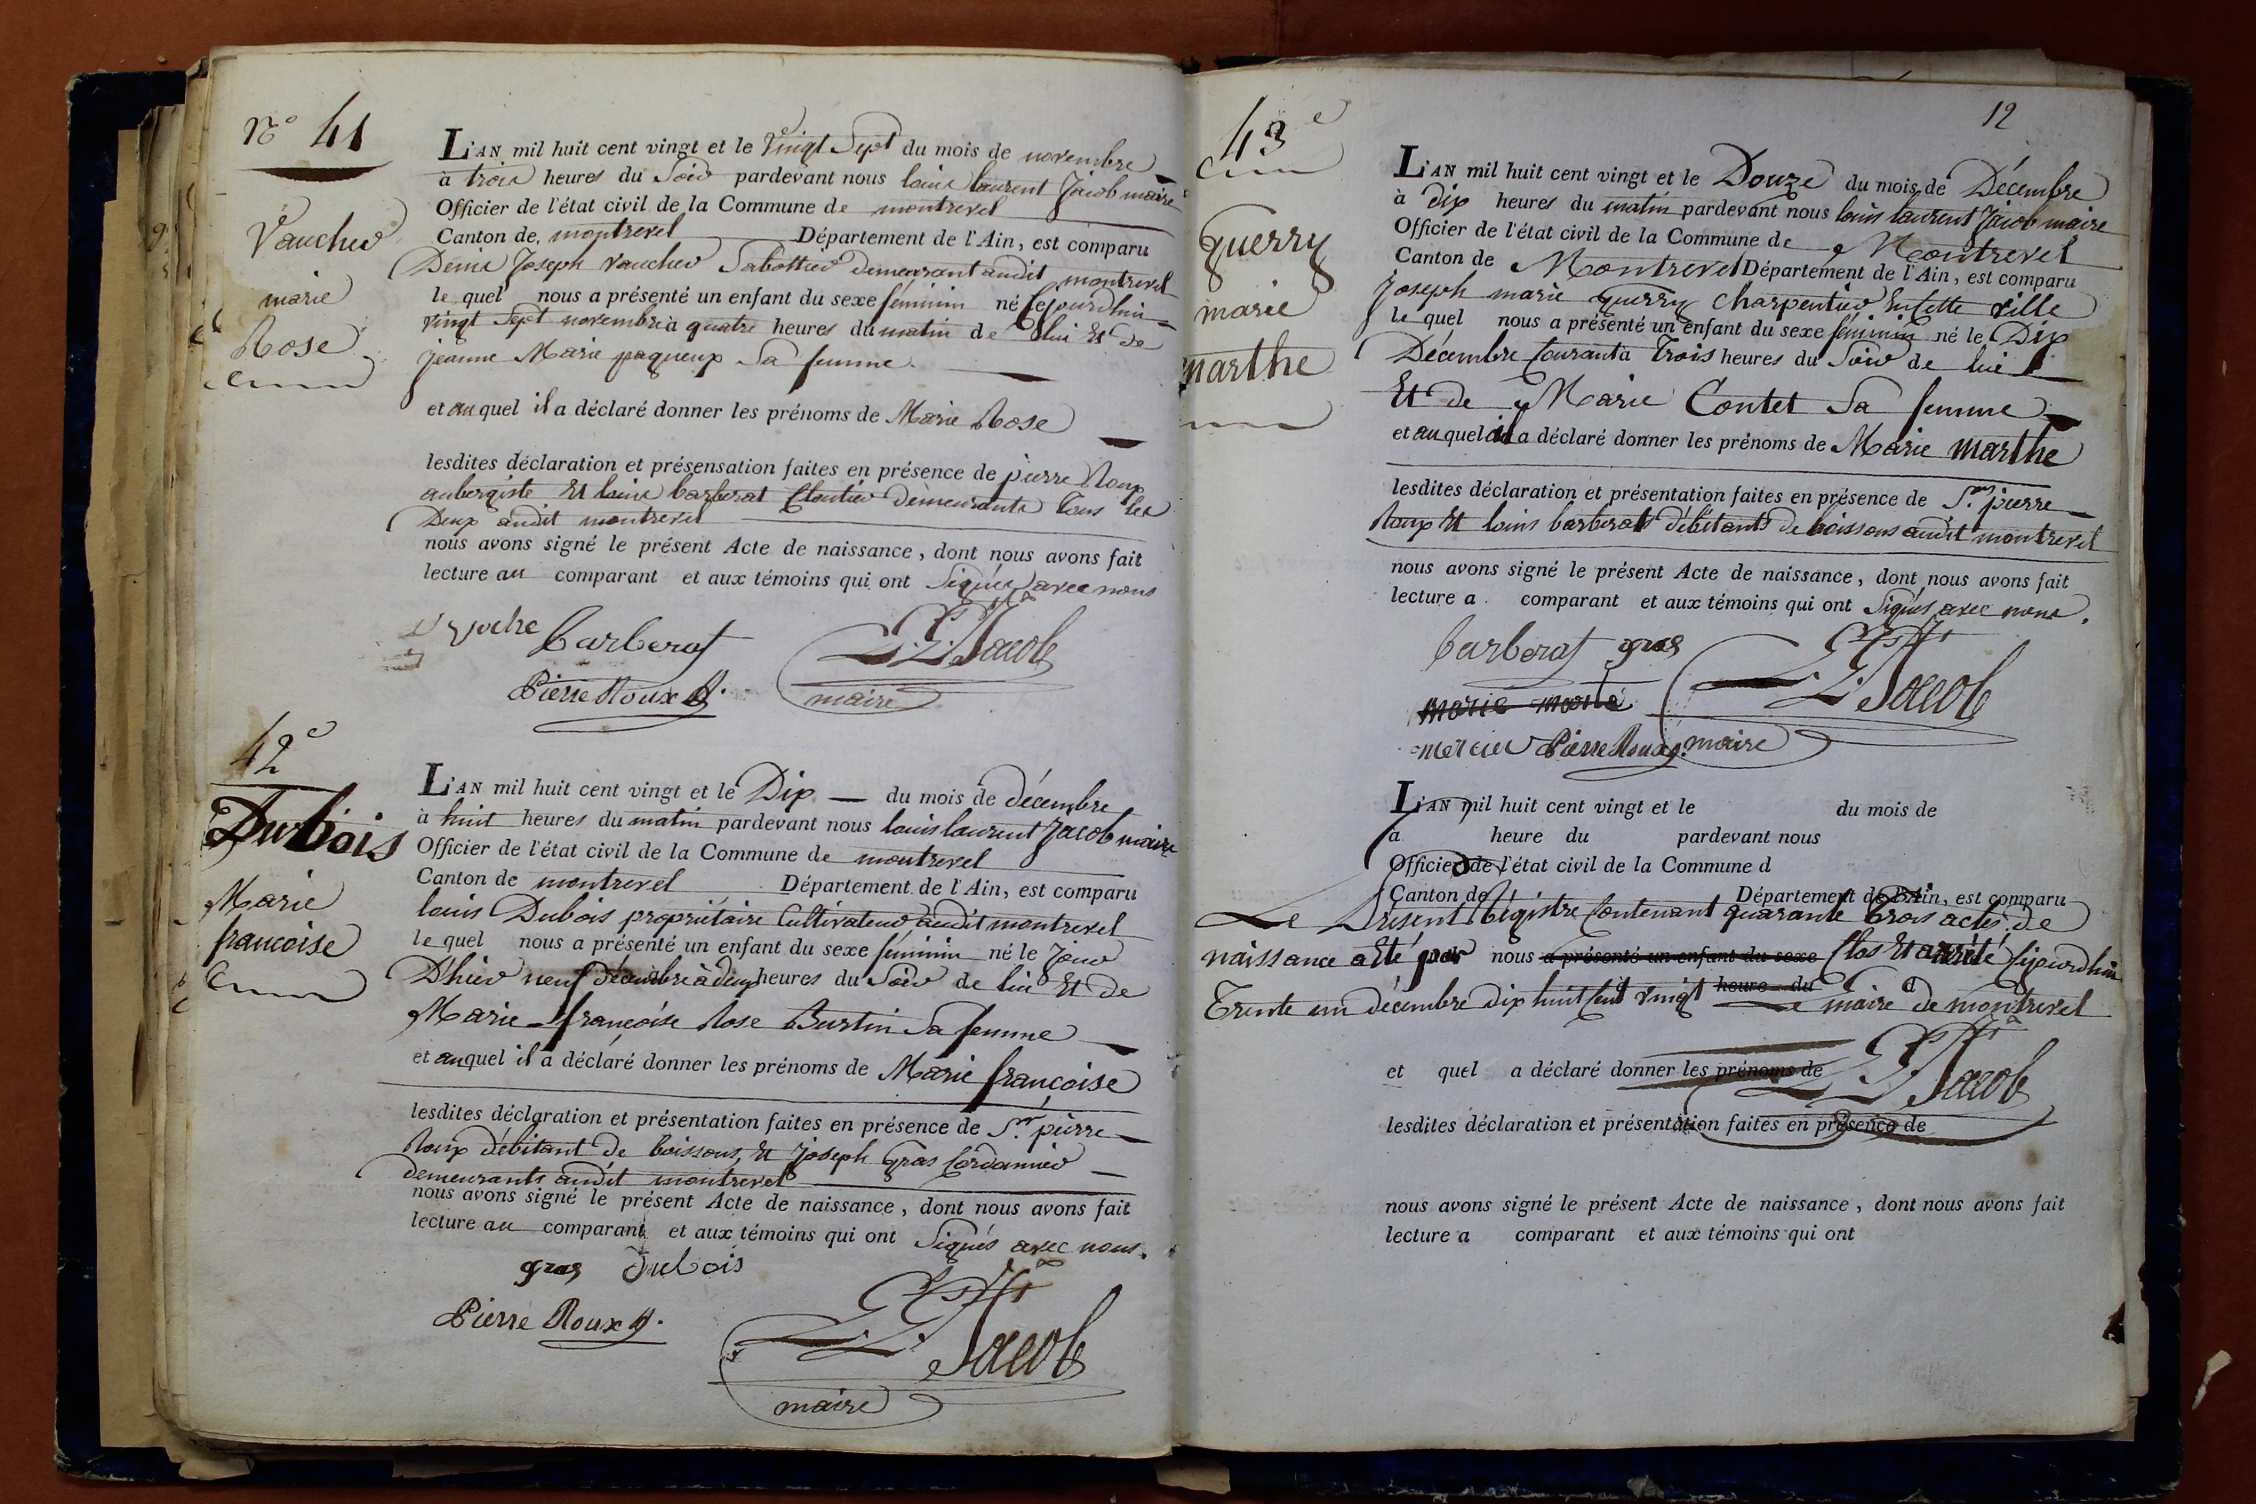 N° 41
Vaucher
marie
Rose
L'AN mil huit cent vingt et le vingt Sept du mois de novembre
à trois heures du Soir pardevant nous louis laurent Jacob maire
Officier de l'état civil de la Commune de montrevel
Canton de montrevel Département de l'Ain, est comparu
Denis Joseph Vaucher Sabottier demeurant audit montrevel
le quel nous a présenté un enfant du sexe féminin né cejourdhui
vingt Sept novembre à quatre heures du matin de lui Et de
jeanne Marie paqueux Sa femme
et au quel il a déclaré donner les prénoms de Marie Rose
lesdites déclaration et présensation faites en présence de pierre Roux
aubergiste Et louis barberat Cloutier demeurants tous les
Deux audit montrevel
nous avons signé le présent Acte de naissance, dont nous avons fait
lecture au comparant et aux témoins qui ont Signés avec nous
Barberat
L. L. Jacob
Pierre Roux
maire
42e
Dubois
Marie
francoise
L'AN mil huit cent vingt et le Dix du mois de décembre
à huit heures du matin pardevant nous louis laurent Jacob maire
Officier de l'état civil de la Commune de montrevel
Canton de montrevel Département de l'Ain, est comparu
louis Dubois propriétaire Cultivateur audit montrevel
le quel nous a présenté un enfant du sexe féminin né le Jour
D'hier neuf décembre à deux heures du Soir de lui Et de
Marie françoise Rose Burtin Sa femme
et au quel il a déclaré donner les prénoms de Marie françoise
lesdites déclaration et présentation faites en présence de Sr. pierre
Roux débitant de boissons, Et joseph Gras Cordannier
demeurants audit montrevel
nous avons signé le présent Acte de naissance, dont nous avons fait
lecture au comparant et aux témoins qui ont Signés avec nous.
gras Dubois
Pierre Roux
L. L. Jacob
maire
12
43e
Guerry
marie
marthe
L'AN mil huit cent vingt et le Douze du mois de Décembre
à dix heures du matin pardevant nous louis laurent Jacob maire
Officier de l'état civil de la Commune de Montrevel
Canton de Montrevel Département de l'Ain, est comparu
Joseph marie Guerry Charpentier En Cette ville
le quel nous a présenté un enfant du sexe féminin né le Dix
Décembre Courant à Trois heures du Soir de lui
Et de Marie Contet Sa femme
et au quel il a déclaré donner les prénoms de Marie marthe
lesdites déclaration et présentation faites en présence de Srs. pierre
Roux Et louis barberat débitants de boissons audit montrevel
nous avons signé le présent Acte de naissance, dont nous avons fait
lecture a comparant et aux témoins qui ont Signés avec nous.
Barberat gras
L. L. Jacob
mercier Pierre Roux maire
L'AN mil huit cent vingt et le du mois de
à heure du pardevant nous
Officier de l'état civil de la Commune d
Canton de Département de l'Ain, est comparu
Le Présent Régistre Contenant quarante trois actes de
naissance a Eté par nous a présenté un enfant du sexe Clos Et arrêté Cejourdhui
Trente un décembre dix huit Cent vingt heure du Le maire de montrevel
L. L. Jacob
et quel a déclaré donner les prénoms de
lesdites déclaration et présentation faites en présence de
nous avons signé le présent Acte de naissance, dont nous avons fait
lecture a comparant et aux témoins qui ont